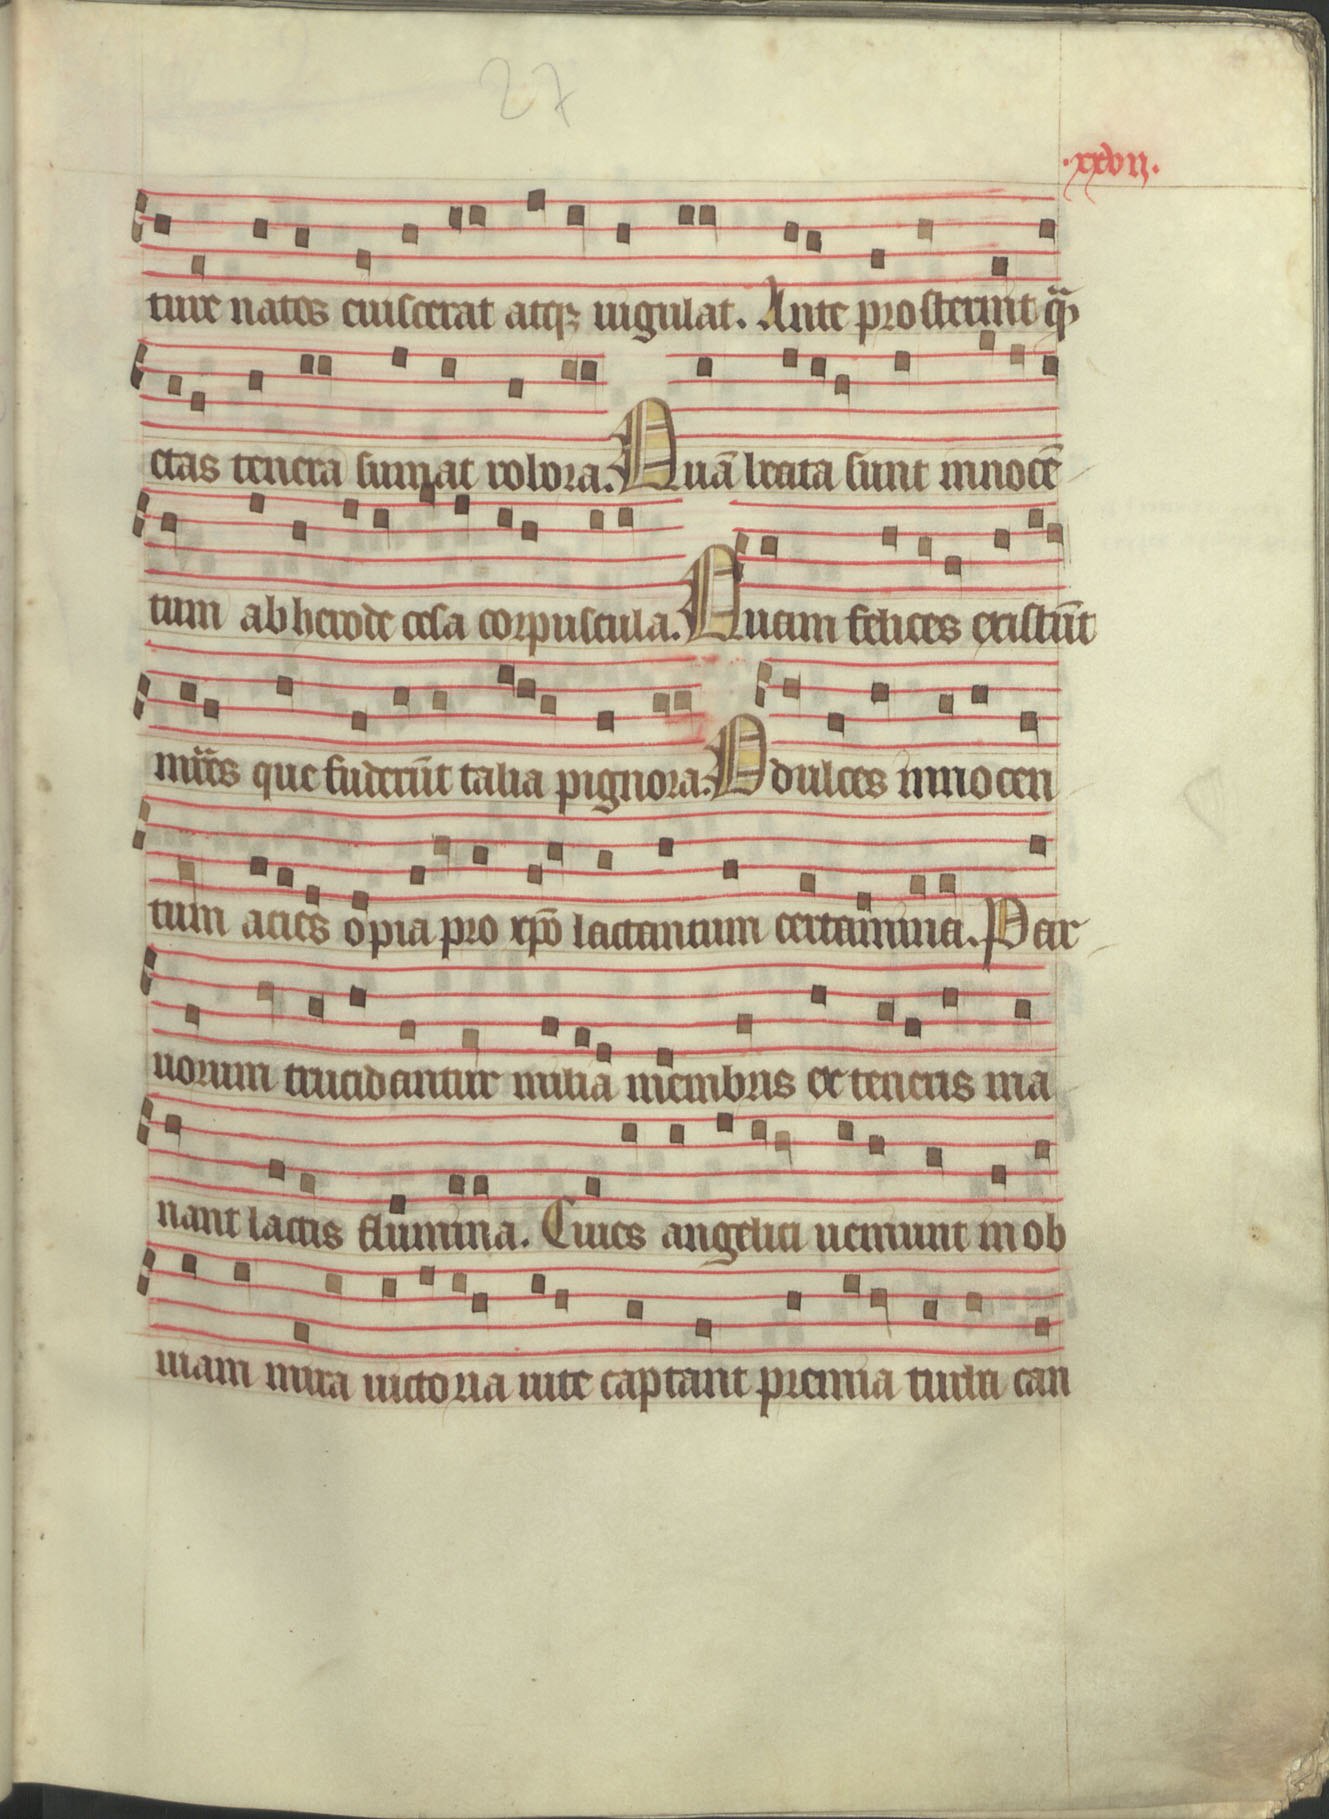 27
.xxvii.
ture natos euiscerat atq; iugulat. Ante prosternit q̃
etas tenera sumat robora. Quā beata sunt innocē
tum ab herode cesa corpuscula. Quam felices existūt
mr̃es que fuderūt talia pignora. O dulces innocen
tum acies o pia pro xp̄o lactantium certamina. Par
uorum trucidantur milia membris ex teneris ma
nant lactis flumina. Ciues angelici ueniunt in ob
uiam mira uictoria uite captant premia turba can